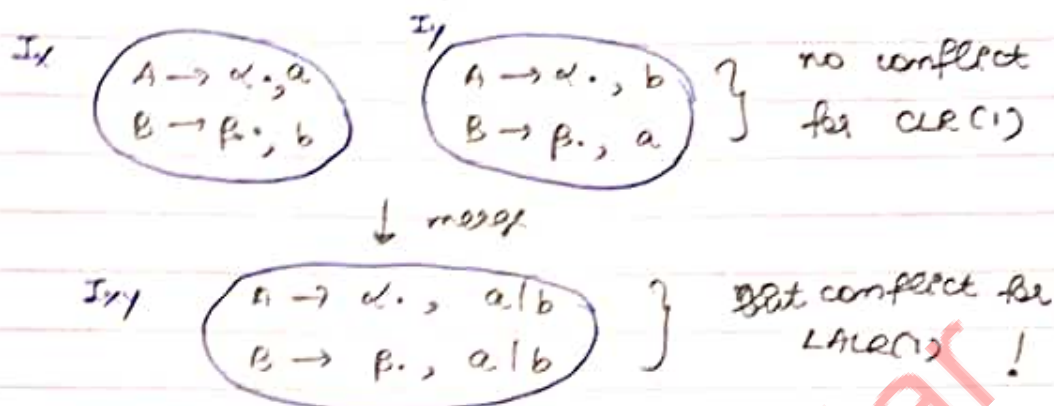 Ix
A → α., a
B → β., b
Iy
A → α., b
B → β., a
} no conflict
for CLR(1)
↓ merge
Ixy
A → α., a|b
B → β., a|b
} but conflict for
LALR(1) !
ar